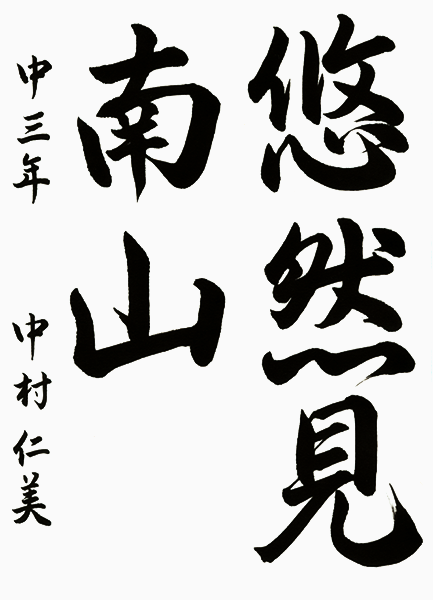 悠然見
南山
中三年 中村仁美